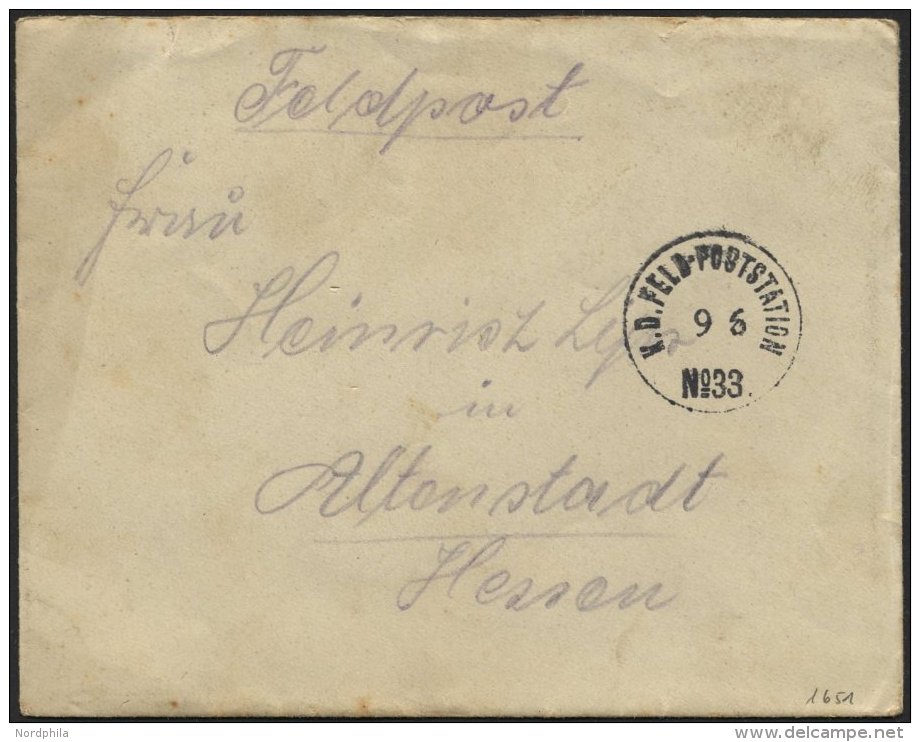 Feldpost
Frau
Heinrich
in
Altenstadt
Hessen
K.D. FELD-POSTSTATION
9 6
No 33.
1651
Nordphila
www.delcampe.net